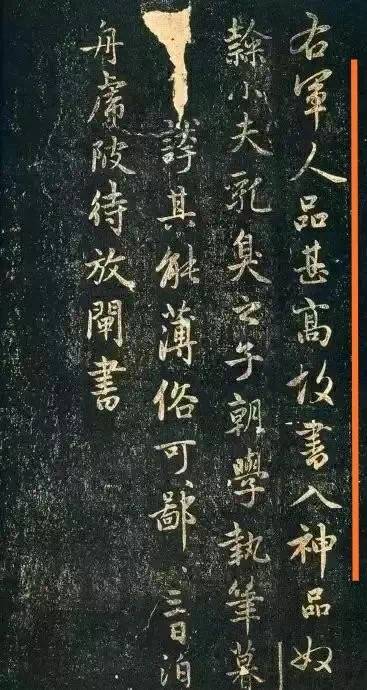 右軍人品甚高故書入神品奴
隸小夫乳臭之子朝學執筆暮
誇其能薄俗可、鄙、三日泊
舟虎陂待放閘書